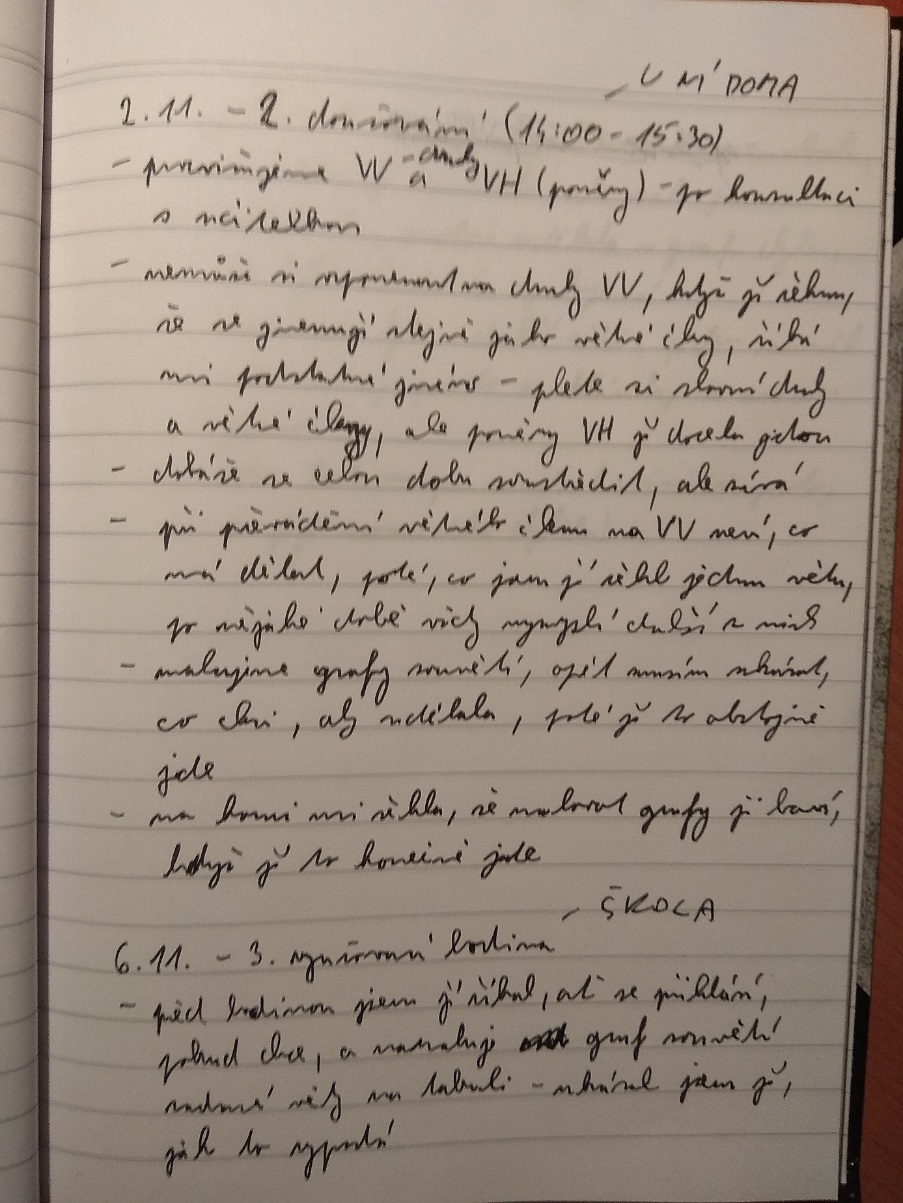 – U NÍ DOMA
2.11. – 2. doučování (14:00 – 15:30)
– procvičujeme VV – druhy a VH (poměry) – po konzultaci
s učitelkou
– nemůže si vzpomenout na druhy VV, když jí řeknu,
že se jmenují stejně jako větné členy, říká
mi podstatné jméno – plete si slovní druhy
a větné členy, ale poměry VH jí docela jdou
– dokáže se celou dobu soustředit, ale zívá
– při převádění větného členu na VV neví, co
má dělat, poté, co jsem jí řekl jednu větu,
po nějaké době vždy vymyslí další z nich
– malujeme grafy souvětí, opět musím ukázat,
co chci, aby udělala, poté jí to obstojně
jde
– na konci mi řekla, že malovat grafy jí baví,
když jí to konečně jde
– ŠKOLA
6.11. – 3. vyučovací hodina
– před hodinou jsem jí říkal, ať se přihlásí,
pokud chce, a namaluje graf souvětí
zadané věty na tabuli – ukázal jsem jí,
jak to vypadá